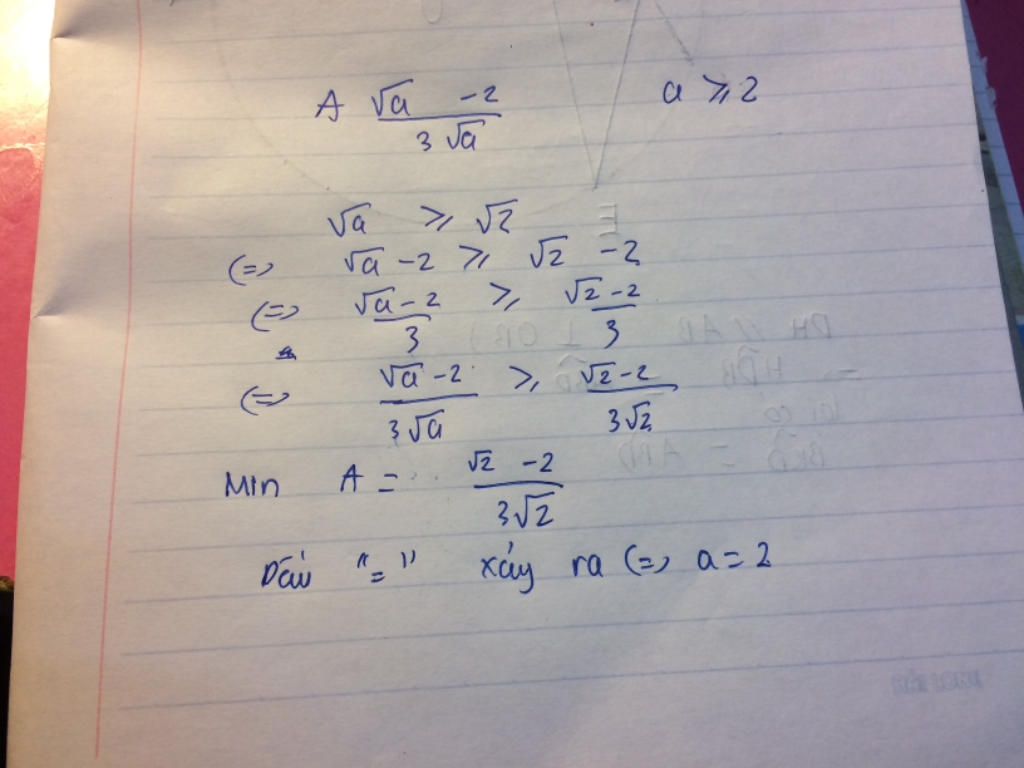 A √a - 2 / 3√a a ≥ 2
√a ≥ √2
(=) √a - 2 ≥ √2 - 2
(=) √a - 2 / 3 ≥ √2 - 2 / 3
(=) √a - 2 / 3√a ≥ √2 - 2 / 3√2
Min A = √2 - 2 / 3√2
Dấu "=" xảy ra (=) a = 2